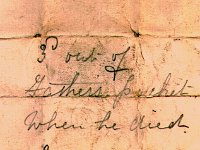 3d out of
Fathers pocket
When he died